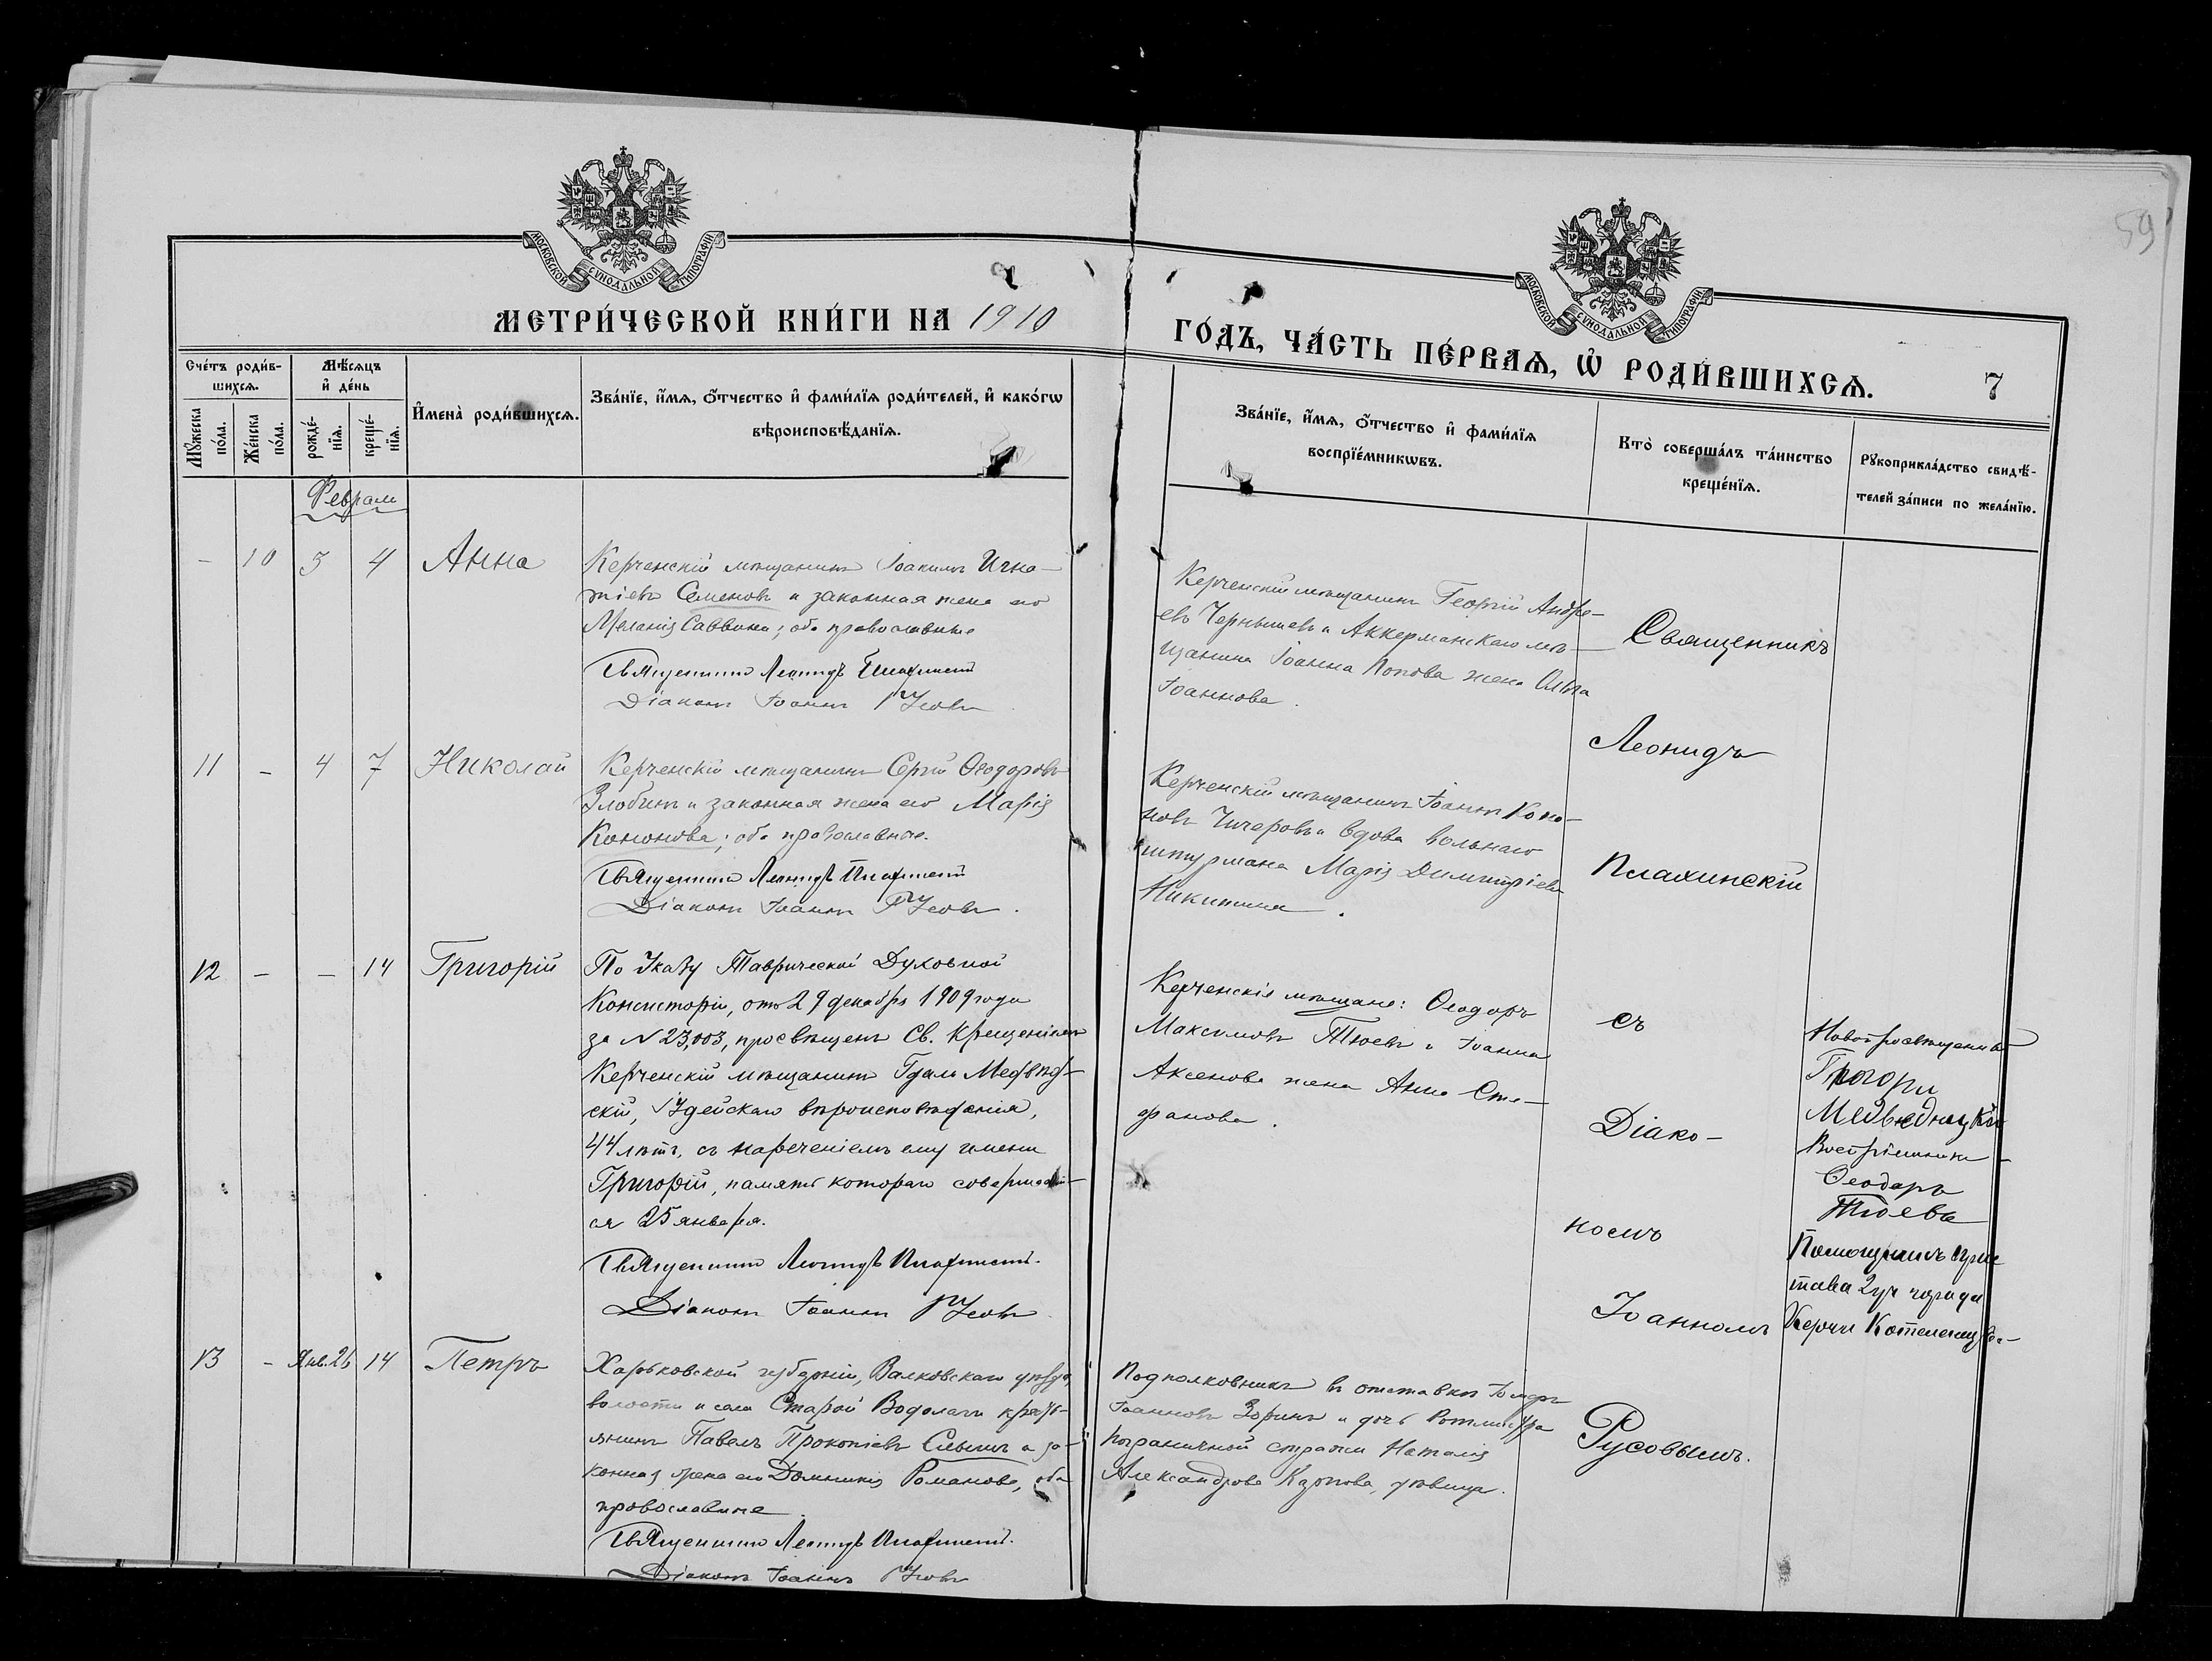 59
МОСКОВСКОЙ СѴНОДАЛЬНОЙ ТИПОГРАФІИ
МОСКОВСКОЙ СѴНОДАЛЬНОЙ ТИПОГРАФІИ
МЕТРИ́ЧЕСКОЙ КНИ́ГИ НА 1910
ГО́ДЪ, ЧА́СТЬ ПЕ́РВАѦ, Ѡ҆ РОДИ́ВШИХСѦ.
7
Сче́тъ роди́в-
шихсѧ.
Мꙋ́жеска по́ла.
Же́нска по́ла.
Мѣ́сѧцъ
и҆ де́нь
рожде́-
нїѧ.
креще́-
нїѧ.
И҆мена̀ роди́вшихсѧ.
Зва́нїе, и҆́мѧ, ѻ҆́тчество и҆ фами́лїѧ роди́телей, и҆ како́гѡ
вѣроисповѣ́данїѧ.
Зва́нїе, и҆́мѧ, ѻ҆́тчество и҆ фами́лїѧ
воспрїе́мникѡвъ.
Кто̀ соверша́лъ та́инство
креще́нїѧ.
Рꙋкоприкла́дство свидѣ́-
телей за́писи по жела́нїю.
Февраля
– 10 3 4 Анна
Керченскій мѣщанинъ Іоакимъ Игна-
тіевъ Семеновъ и законная жена его
Меланія Саввина; оба православные
Священникъ Леонидъ Плахинскій
Діаконъ Іоаннъ Русовъ
Керченскій мѣщанинъ Георгій Андре-
евъ Чернышевъ и Аккерманскаго мѣ-
щанина Іоанна Попова жена Ольга
Іоаннова.
11 – 4 7 Николай
Керченскій мѣщанинъ Сергій Ѳеодоровъ
Злобинъ и законная жена его Марія
Кононова; оба православные.
Священникъ Леонидъ Плахинскій
Діаконъ Іоаннъ Русовъ.
Керченскій мѣщанинъ Іоаннъ Коно-
новъ Чичеровъ и вдова вольнаго
штурмана Марія Димитріева
Никитина.
12 – – 14 Григорій
По Указу Таврической Духовной
Консисторіи, отъ 29 декабря 1909 года
за № 23,003, просвѣщенъ Св. Крещеніемъ
Керченскій мѣщанинъ
скій, Іудейскаго вѣроисповѣданія,
44 лѣтъ, съ нареченіемъ ему имени
Григорій, память котораго совершает-
ся 25 января.
Священникъ Леонидъ Плахинскій.
Діаконъ Іоаннъ Русовъ
Керченскіе мѣщане: Ѳеодоръ
Максимовъ Тюевъ и Іоанна
Аксенова жена Анна Сте-
фанова.
Новопросвѣщенный
Григорій
Медвѣдницкій
Воспріемники
Ѳеодоръ
Тюевъ
Помощникъ прис
тава 2 уч города
Керчи
13 – Янв. 26 14 Петръ
Харьковской губерніи, Валковскаго уѣзда,
волости и села Старой Водолаги кресть-
янинъ Павелъ Прокопіевъ и за-
конная жена его Домникія Романова, оба
православные.
Священникъ Леонидъ Плахинскій.
Діаконъ Іоаннъ Русовъ
Подполковникъ въ отставкѣ
Іоанновъ Зоринъ и дочь Ротмистра
пограничной стражи Наталія
Александрова Карпова, дѣвица.
Священникъ
Леонидъ
Плахинскій
съ
Діако-
номъ
Іоанномъ
Русовымъ.